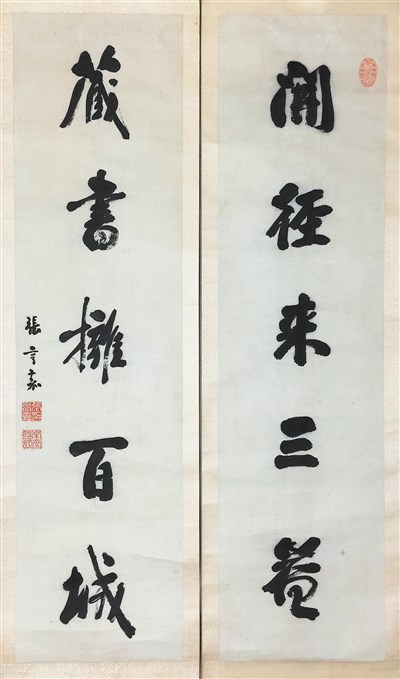 開徑来三益
藏書擁百城
張亨嘉